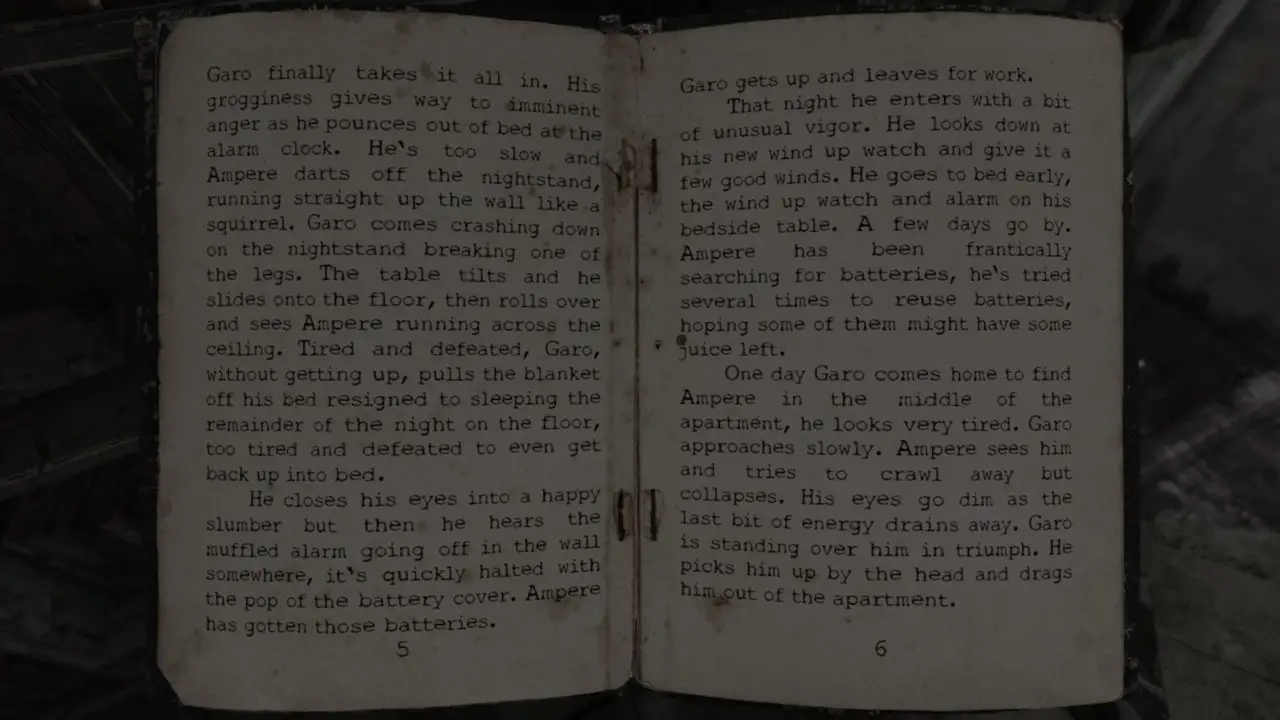 Garo finally takes it all in. His
grogginess gives way to imminent
anger as he pounces out of bed at the
alarm clock. He's too slow and
Ampere darts off the nightstand,
running straight up the wall like a
squirrel. Garo comes crashing down
on the nightstand breaking one of
the legs. The table tilts and he
slides onto the floor, then rolls over
and sees Ampere running across the
ceiling. Tired and defeated, Garo,
without getting up, pulls the blanket
off his bed resigned to sleeping the
remainder of the night on the floor,
too tired and defeated to even get
back up into bed.
He closes his eyes into a happy
slumber but then he hears the
muffled alarm going off in the wall
somewhere, it's quickly halted with
the pop of the battery cover. Ampere
has gotten those batteries.
5
Garo gets up and leaves for work.
That night he enters with a bit
of unusual vigor. He looks down at
his new wind up watch and give it a
few good winds. He goes to bed early,
the wind up watch and alarm on his
bedside table. A few days go by.
Ampere has been frantically
searching for batteries, he's tried
several times to reuse batteries,
hoping some of them might have some
juice left.
One day Garo comes home to find
Ampere in the middle of the
apartment, he looks very tired. Garo
approaches slowly. Ampere sees him
and tries to crawl away but
collapses. His eyes go dim as the
last bit of energy drains away. Garo
is standing over him in triumph. He
picks him up by the head and drags
him out of the apartment.
6